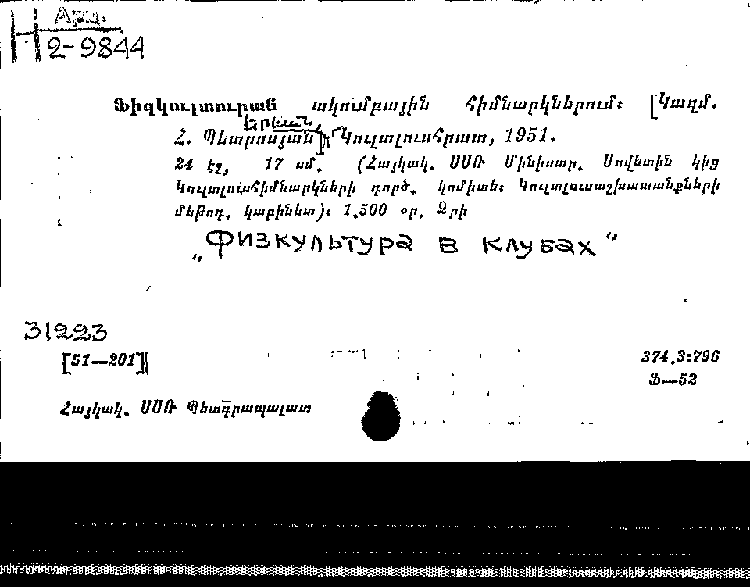 Арм.
Н 2-9844
Ֆիզկուլտուրան ակումբային հիմնարկներում։ [Կազմ.
Երևան,
Հ. Պետրոսյան], Կուլտլուսհրատ, 1951.
24 էջ, 17 սմ. (Հայկակ. ՍՍՌ Մինիստր. Սովետին կից
Կուլտլուսհիմնարկների գործ. կոմիտե։ Կուլտլուսաշխատանքների
մեթոդ. կաբինետ)։ 1.500 օր. Ձրի
„Физкультура в клубах“
31223
[51—201]
374.3:796
Ֆ—52
Հայկակ. ՍՍՌ Պետգրապալատ